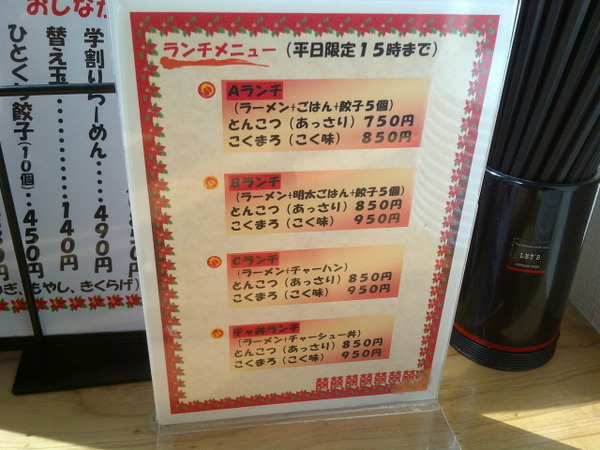 ランチメニュー（平日限定15時まで）
Aランチ
（ラーメン+ごはん+餃子5個）
とんこつ（あっさり）750円
こくまろ（こく味） 850円
Bランチ
（ラーメン+明太ごはん+餃子5個）
とんこつ（あっさり）850円
こくまろ（こく味） 950円
Cランチ
（ラーメン+チャーハン）
とんこつ（あっさり）850円
こくまろ（こく味） 950円
チャ丼ランチ
（ラーメン+チャーシュー丼）
とんこつ（あっさり）850円
こくまろ（こく味） 950円
おしな
学割りらーめん.....490円
替え玉..........140円
ひとく 餃子(10個)..450円
ぎ、もやし、きくらげ）
LET'S